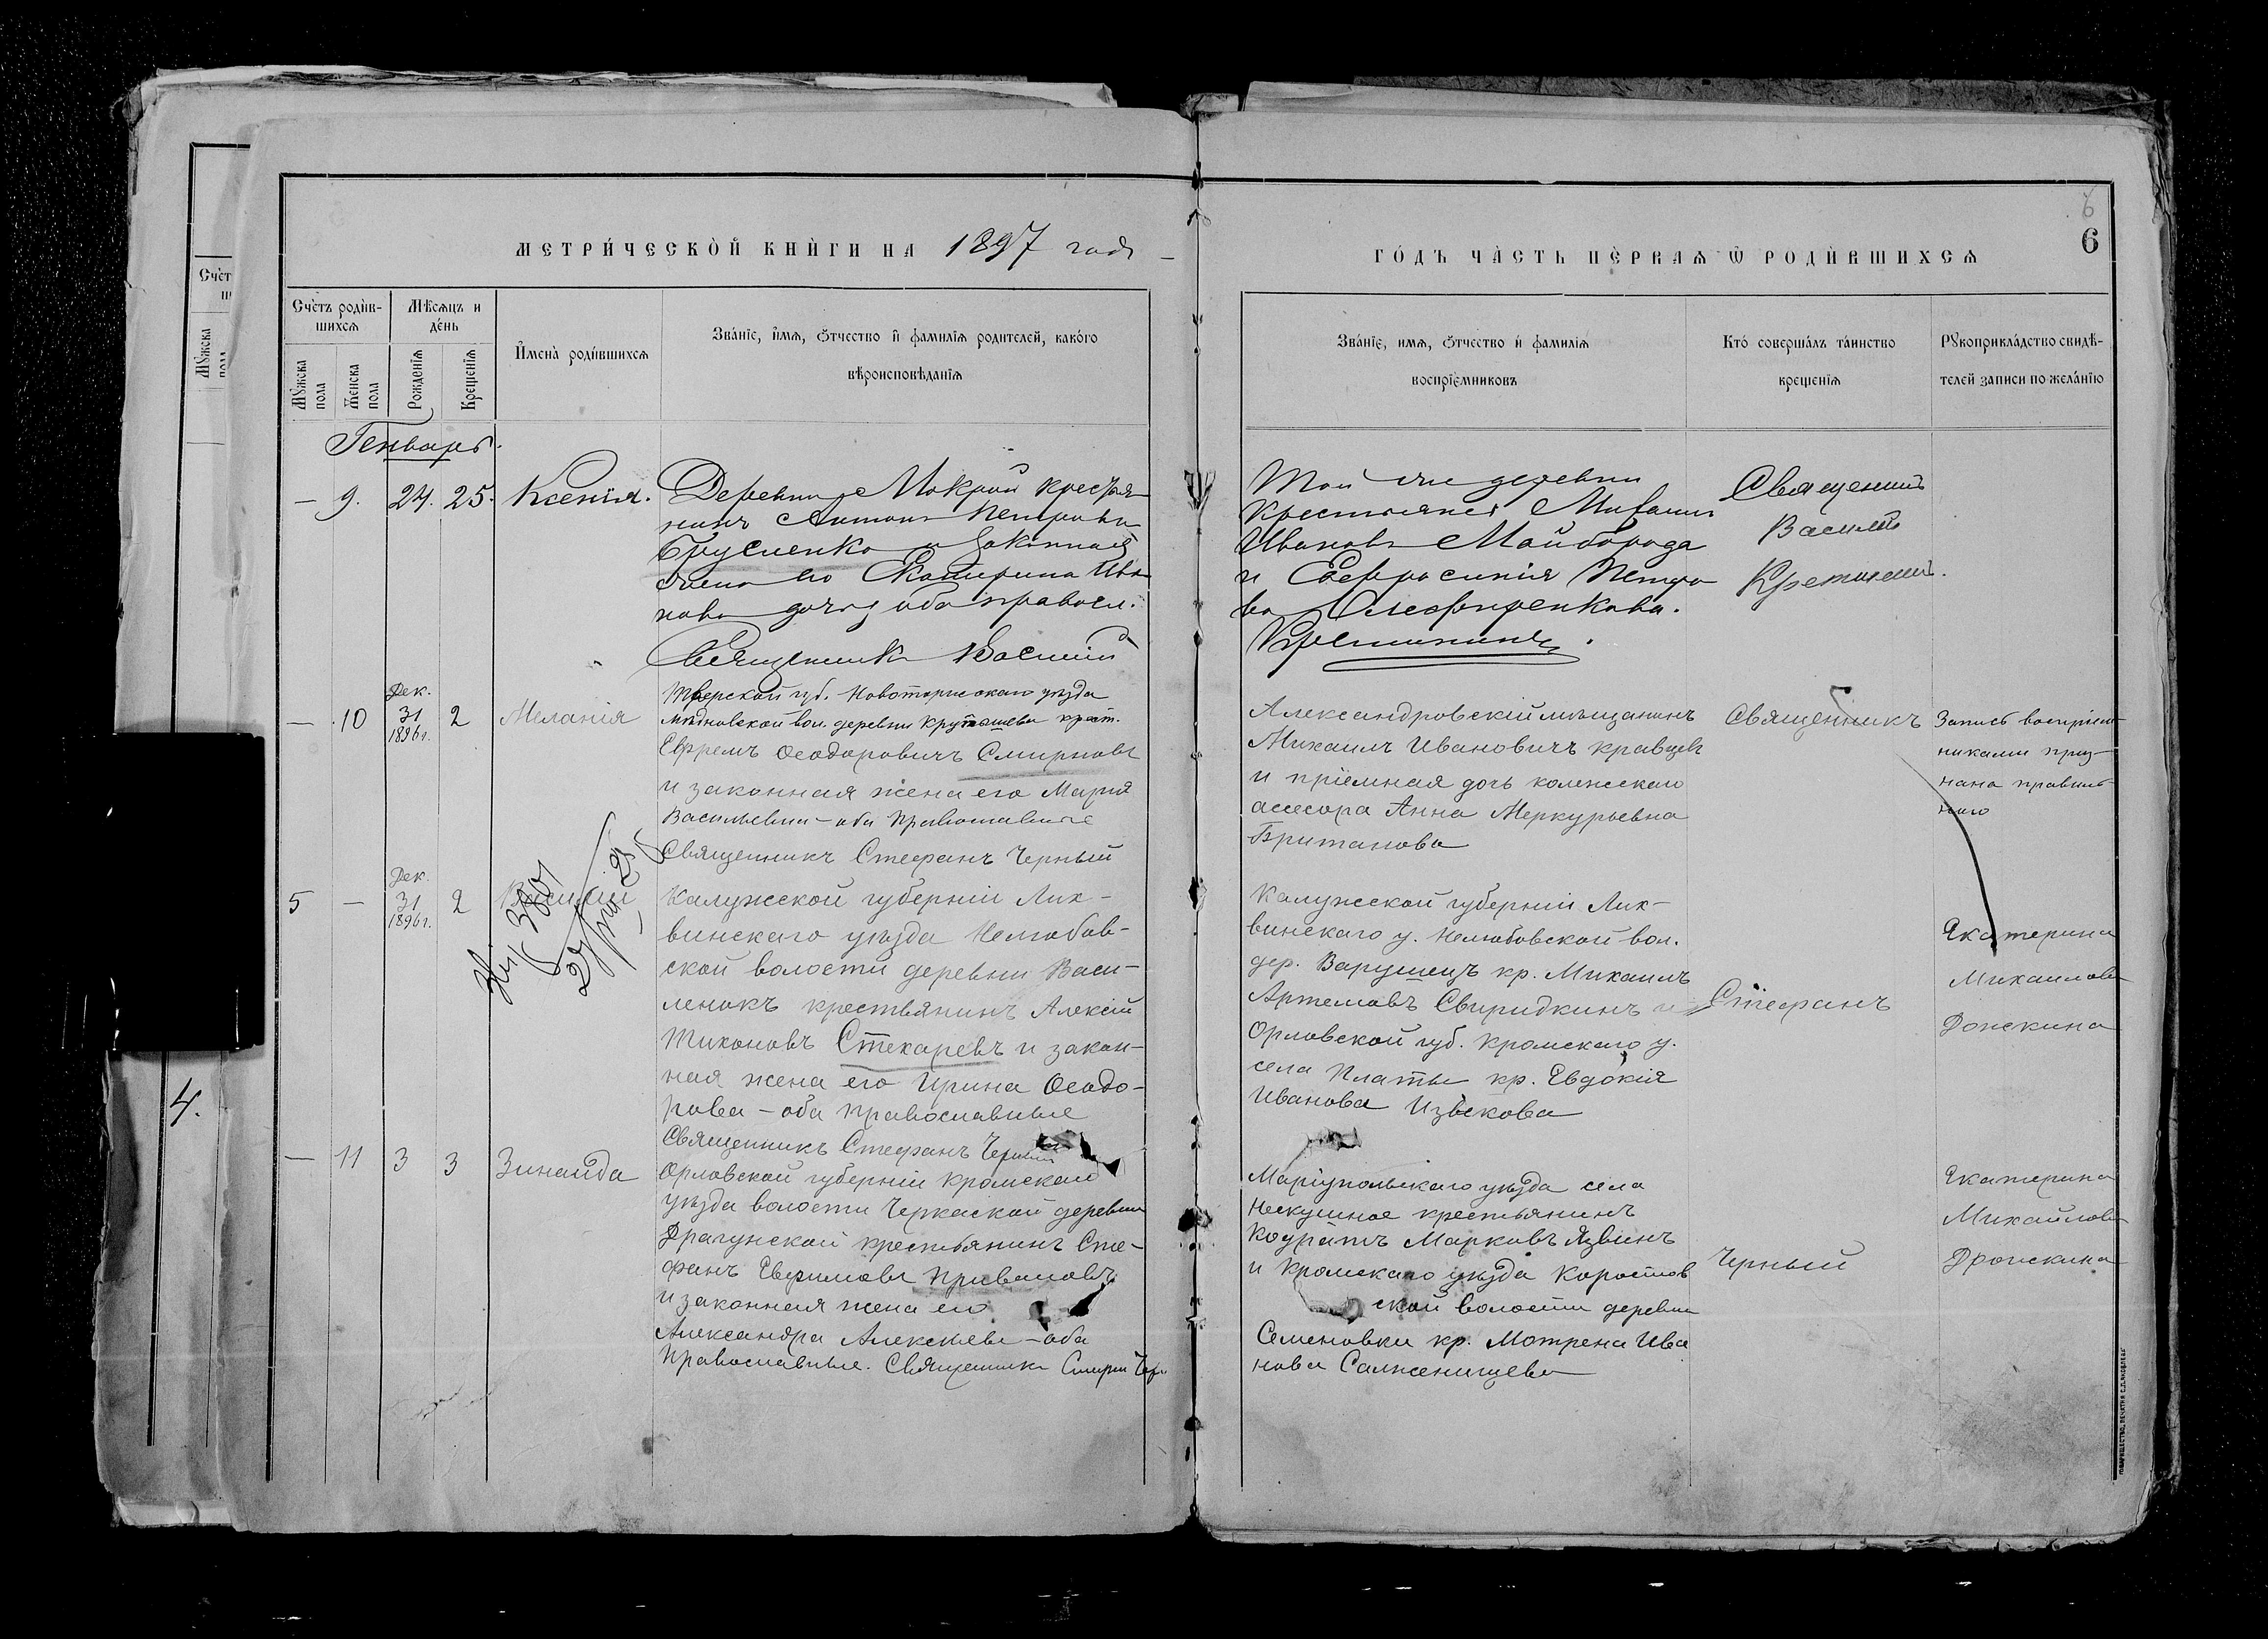 6
6
МЕТРИ́ЧЕСКОЙ КНИ́ГИ НА 1897 годъ
ГО́ДЪ ЧА́СТЬ ПЕ́РВАѦ Ѿ РОДИ́ВШИХСѦ
Счéтъ роди́в-
шихсѧ
Мѣ́сѧцъ и
де́нь
Мꙋ́жска
пола
Же́нска
пола
Рожденїѧ
Крещенїѧ
И҆мена̀ роди́вшихсѧ
Зва́нїе, и҆́мѧ, ѻ҆́тчество и҆ фамилїѧ родителей, како́гѡ
вѣроисповѣ́данїѧ
Зва́нїе, имѧ, ѻ҆́тчество и҆ фамилїѧ
воспрїе́мниковъ
Кто́ соверша́лъ та́инство
крещенїѧ
Рꙋкоприкла́дство свидѣ-
телей записи по жела́нїю
Генварь.
— 9. 24. 25. Ксенія.
Деревни Мокрой крестья-
нинъ Антонъ Петровъ
и законная
жена его Екатерина Ива-
нова дочь, оба правосл.
Священникъ Василій
Той же деревни
крестьянинъ Михаилъ
Ивановъ Майборода
и Евфросинія Петро
ва
Священникъ
Василій
— 10 Дек. 31 1896г. 2 Меланія
Тверской губ. Новоторжскаго уѣзда
вол. деревни крест.
Ефремъ Ѳеодоровичъ Смирновъ
и законная жена его Марія
Васильевна – оба православные
Священникъ Стефанъ Черный
Александровскій мѣщанинъ
Михаилъ Ивановичъ Кравцовъ
и пріемная дочь колежскаго
асесора Анна Меркурьевна
Британова
Священникъ
Запись воспріем-
никами приз-
нана правиль-
ною
5 — Дек. 31 1896г. 2 Василій
Калужской губерніи Лих-
винскаго уѣзда Нелюбов-
ской волости деревни Васи-
ленокъ крестьянинъ Алексій
Тихоновъ Стекаревъ и закон-
ная жена его Ирина Ѳеодо-
рова – оба православные
Священникъ Стефанъ Черный
Калужской губерніи Лих-
винскаго у. Нелюбовской вол.
дер. Варушецъ кр. Михаилъ
Артемовъ Свиридкинъ и
Орловской губ. Кромскаго у.
села Платы кр. Евдокія
Иванова Извекова
Стефанъ
Екатерина
Михаилова
Донскина
— 11 3 3 Зинаида
Орловской губерніи Кромскаго
уѣзда волости Черкаской деревни
Драгунской крестьянинъ Сте-
фанъ Евфимовъ Приваловъ
и законная жена его
Александра Алексѣева – оба
православные. Священникъ Стефанъ Чер
Маріупольскаго уѣзда села
Нескушное крестьянинъ
Кодратъ Марковъ Язвинъ
и Кромскаго уѣзда Коростов
ской волости деревни
Семеновки кр. Мотрена Ива
нова Салженицева
Черный
Екатерина
Михайлова
Дронскина
4.